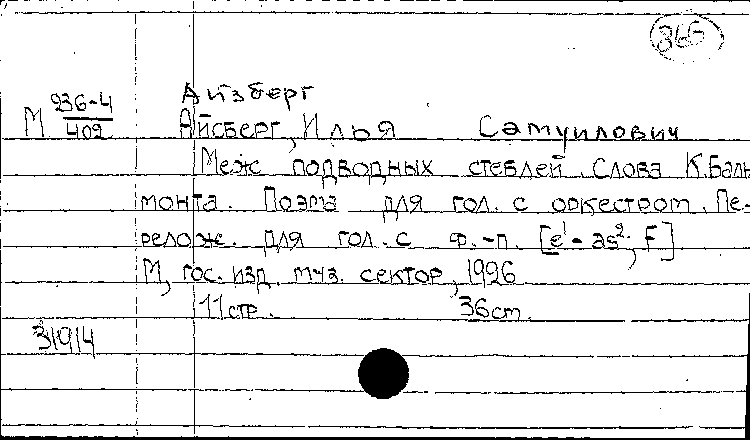 865
Айзберг
М 936-4/402
Айсберг, Илья Самуилович
Меж подводных стеблей. Слова К. Баль
монта. Поэма для гол. с оркестром. Пе-
релож. для гол. с ф.-п. [e¹-as², F]
М, гос. изд. муз. сектор, 1926
11 стр. 36 cm.
31914